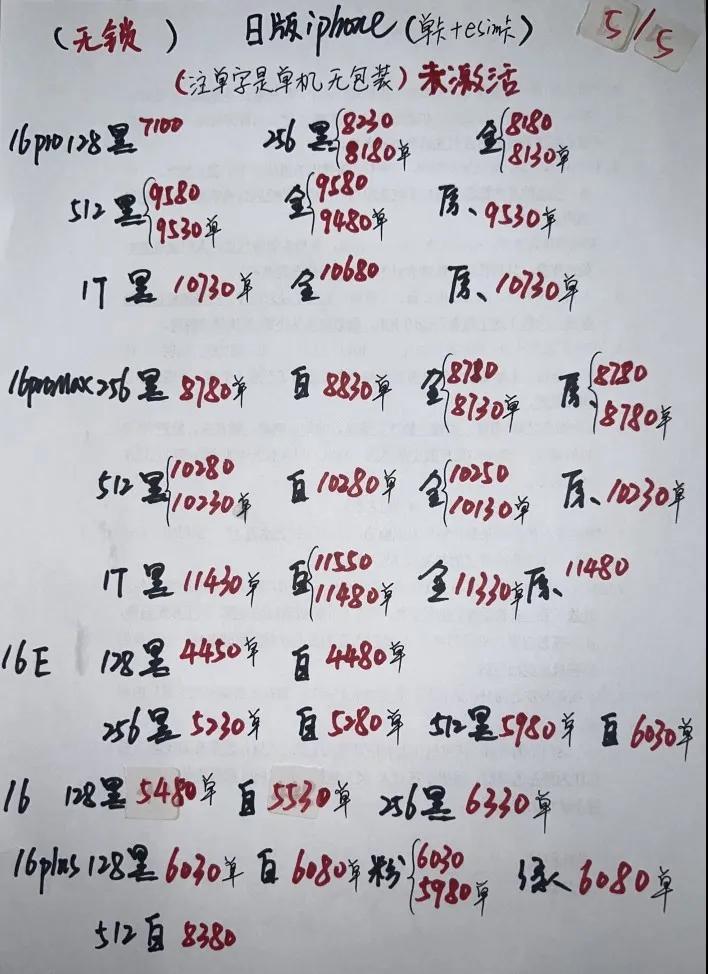 (无锁) 日版iphone(单卡+esim卡) 5/5
(注单字是单机无包装)未激活
16pro128黑7100 256黑{8230 8180单 金{8180 8130单
512黑{9580 9530单 金{9580 9480单 原、9530单
1T黑 10730单 金10680 原、10730单
16promax256黑 8780单 白 8830单 金{8780 8730单 原{8780 8780单
512黑{10280 10230单 白10280单 金{10250 10130单 原、10230单
1T黑 11430单 白{11550 11480单 金11330单 原、11480
16E 128黑 4450单 白 4480单
256黑 5230单 白 5280单 512黑5980单 白 6030单
16 128黑5480单 白5530单 256黑 6330单
16plus128黑6030单 白 6080单 粉{6030 5980单 绿 6080单
512白 8380